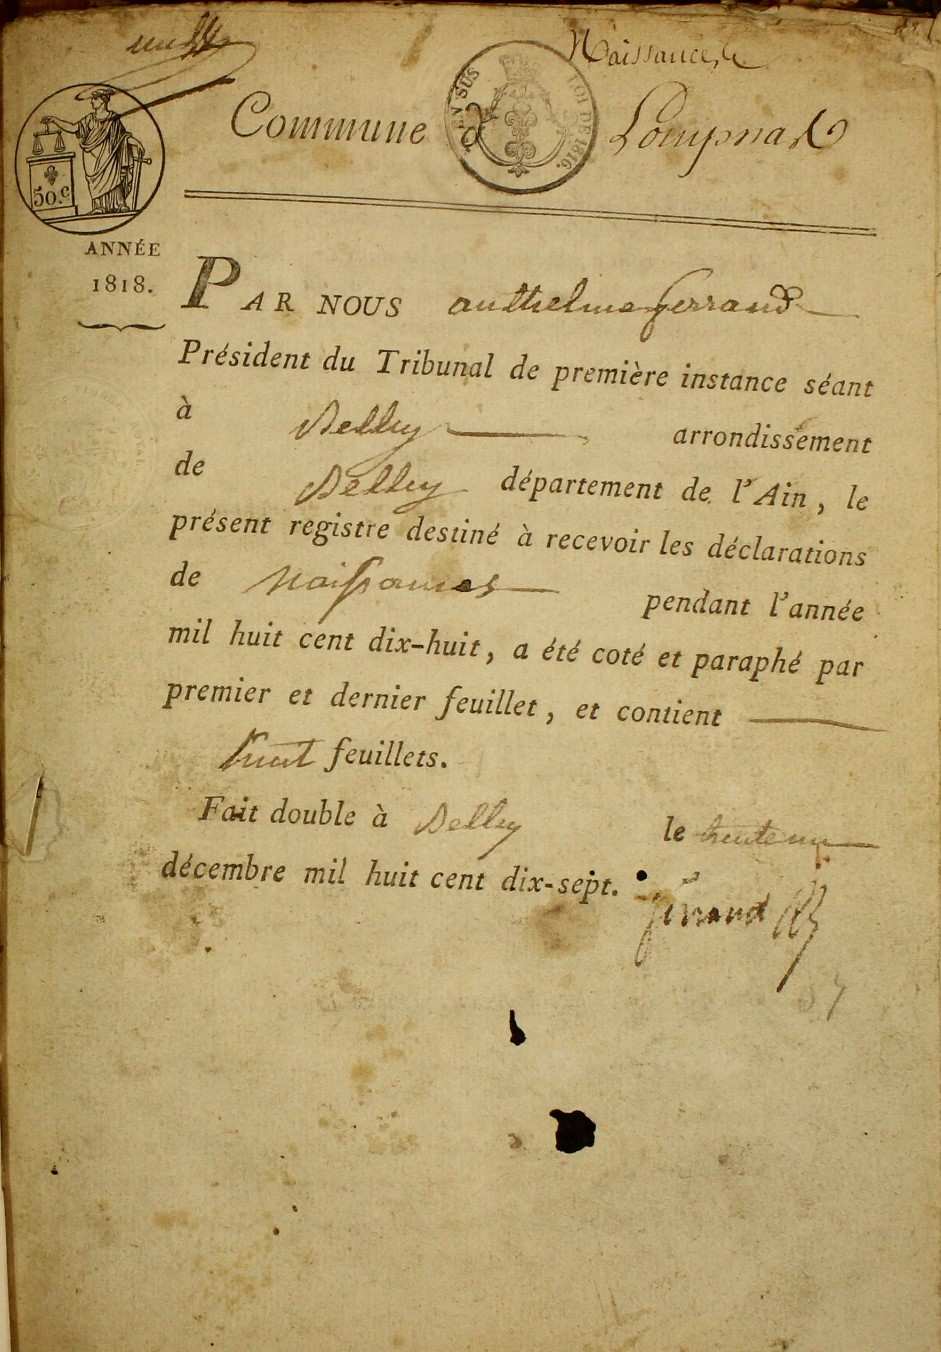 Naissances
Commune de Lompnas
EN SUS LOI DE 1816.
50.c
ANNÉE
1818.
PAR NOUS anthelme ferrand
Président du Tribunal de première instance séant
à Belley arrondissement
de Belley département de l'Ain, le
présent registre destiné à recevoir les déclarations
de Naissances pendant l'année
mil huit cent dix-huit, a été coté et paraphé par
premier et dernier feuillet, et contient
huit feuillets.
Fait double à Belley le trente un
décembre mil huit cent dix-sept.
ferrand